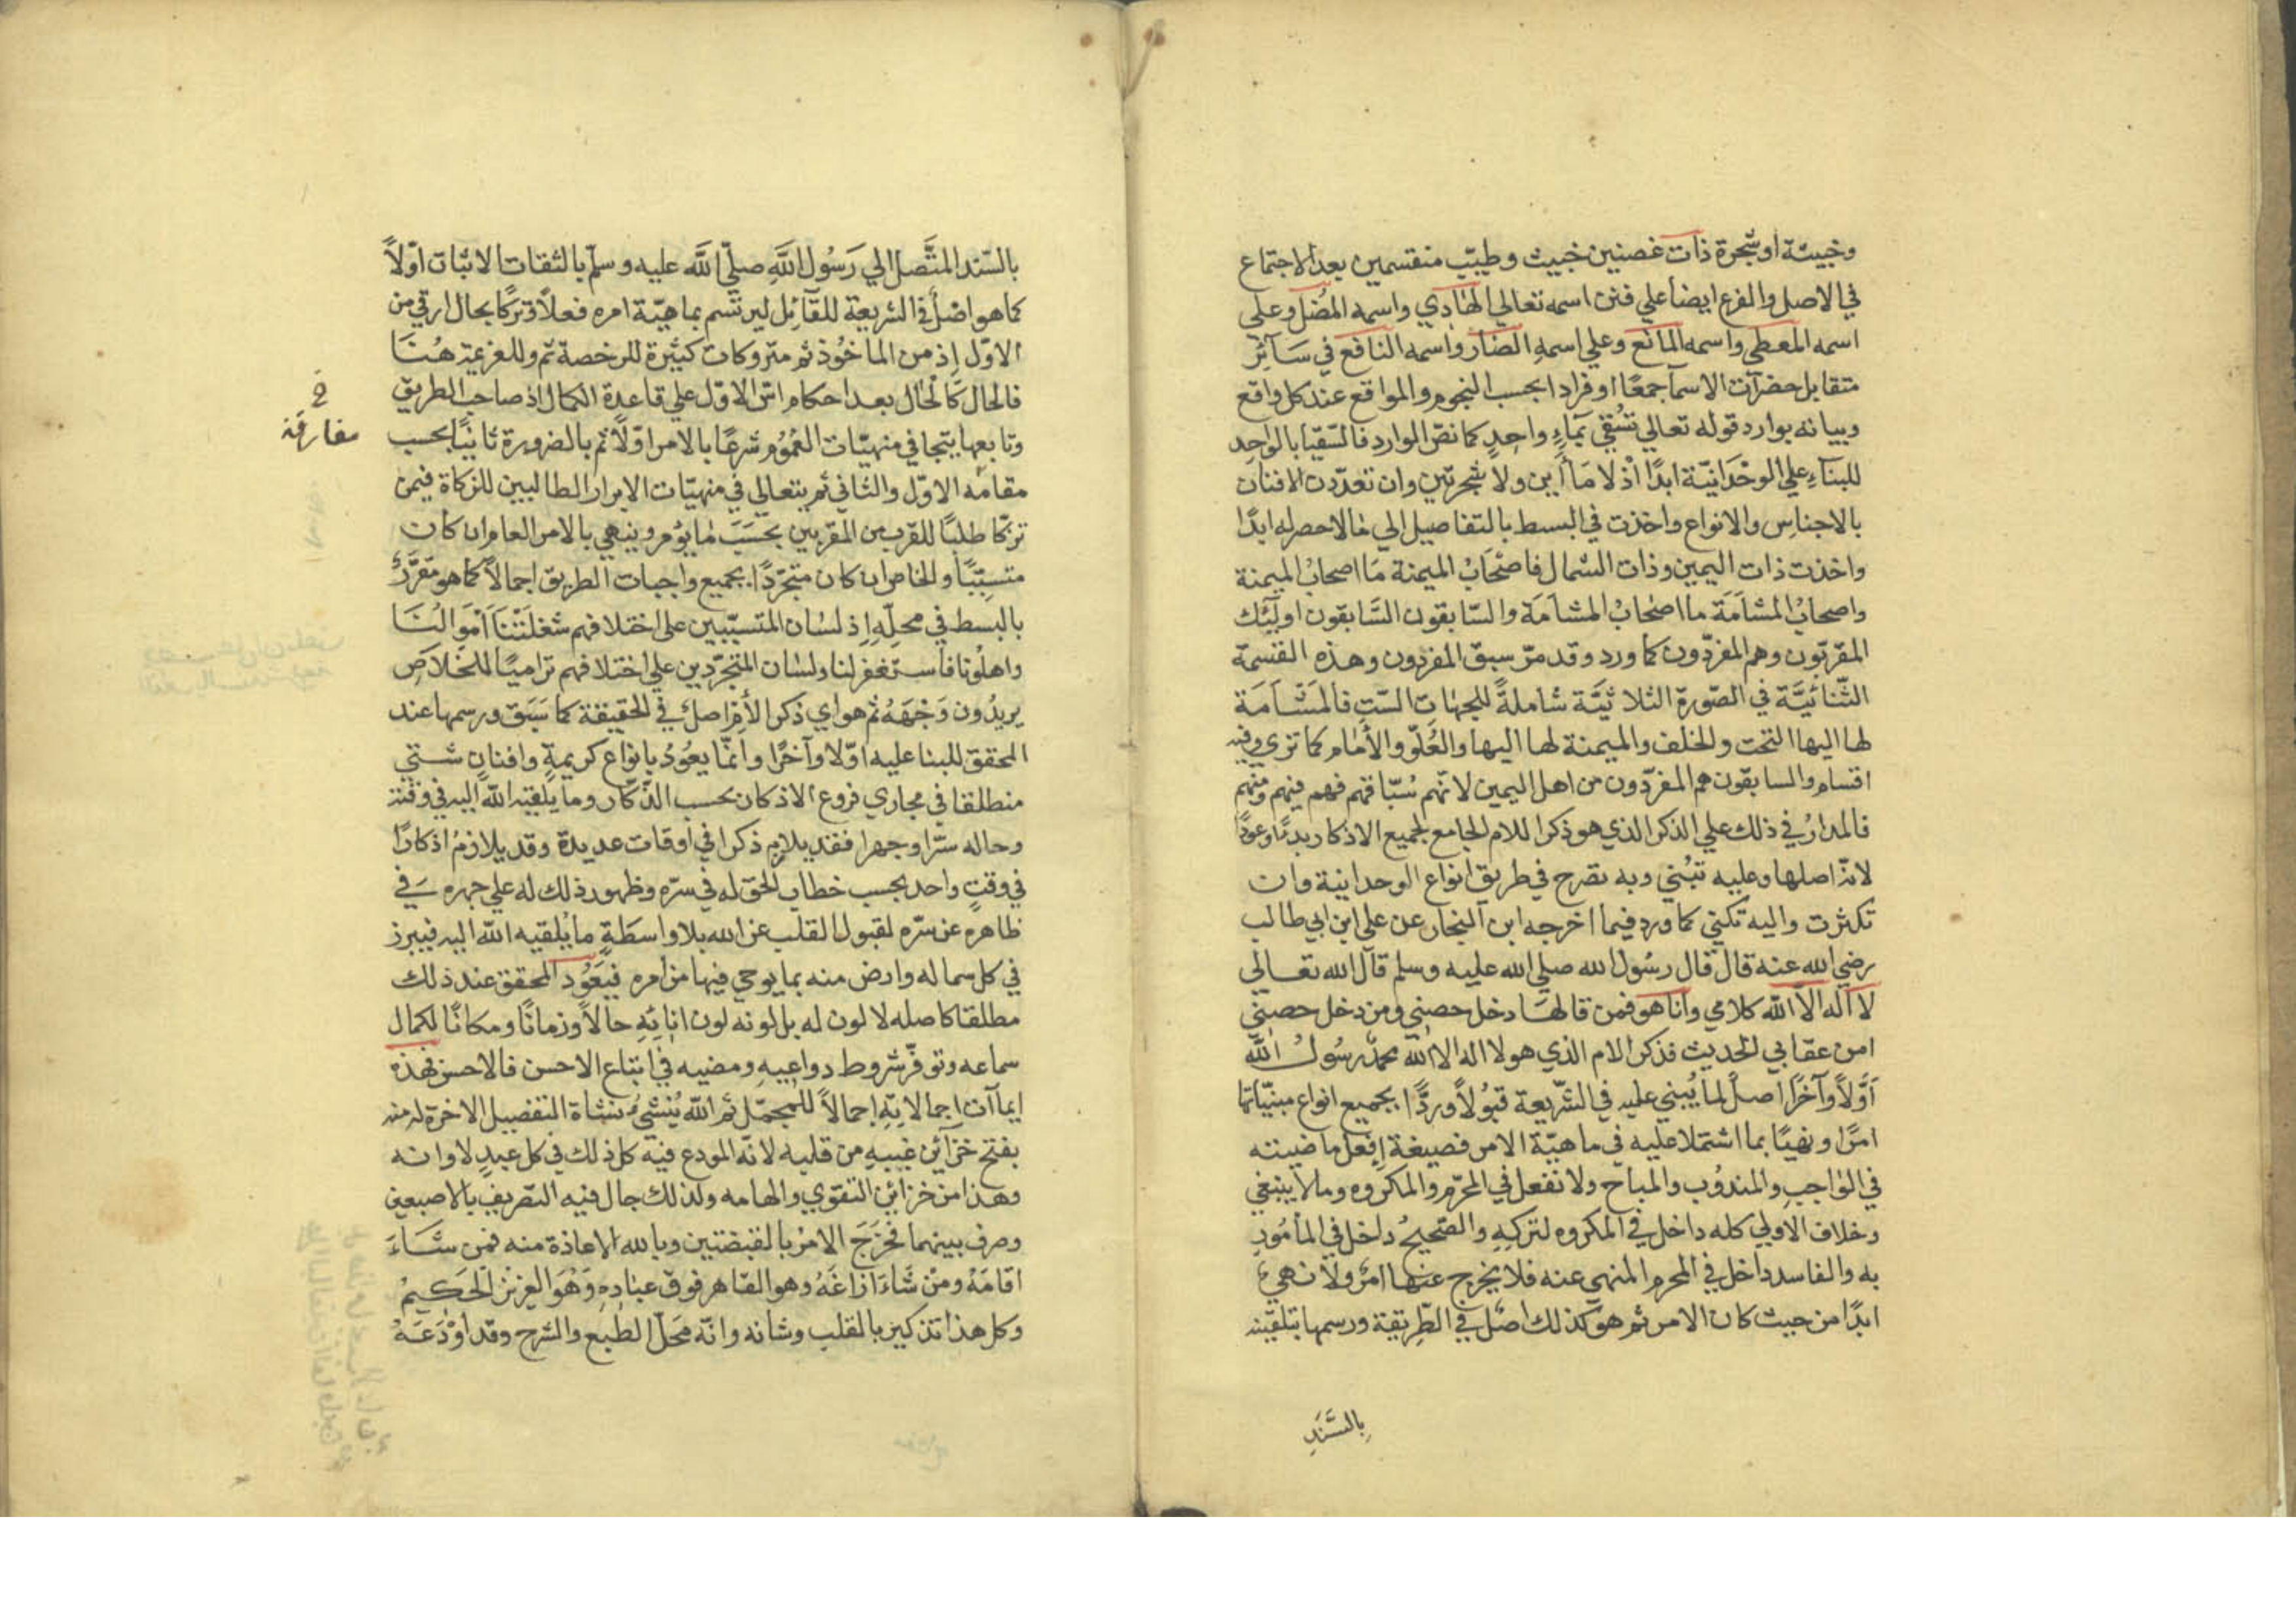 وخبيثة او شجرة ذات غصنين خبيث وطيّب منقسمين بعد الاجتماع
في الاصل والفرع ايضا علي فنن اسمه تعالي الهادي واسمه المُضل وعلي
اسمه المعطي واسمه المانع وعلي اسمهِ الضار واسمه النافع في سَآئِرْ
متقابل حضرآت الاسمآ جمعًا او فرادا بحسب النجوم والمواقع عند كل واقع
وبيانه بوارد قوله تعالي تسُقي بمَآءٍ واحِدٍ كما نصّ الوارد فالسّقيا بالواحِد
للبنآءِ علي الوحْدَانيّة ابدًا اذْ لا مَآأين ولا شجرتين وان تعدّدت الافنان
بالاجناسِ والانواع واخذت في البسط بالتفاصيل الي مالا حصر له ابدًا
واخذت ذات اليمين وذات الشمال فاصْحَابْ الميمنة مَا اصحابُ الميمنة
واصحابُ المشأمَة ما اصْحَابُ المشامَة والسّابقون السَّابقون اوليٓئك
المقرّبون وهم المفرّدون كما ورد وقد مرّ سبق المفردون وهذه القسمة
الثّنائيّة في الصّورة الثلاثيَّة شاملةً للجهٰاتِ الستِ فالمشَأمَة
لها اليها التحت والخلف والميمنة لها اليها والعُلوّ والأمام كما تري وفيه
اقسام والسابقون هم المفرّدون من اهل اليمين لانهّم سُبّاقهم فهم فيهم ومنهم
فالمدارُ في ذلك علي الذكر الذي هو ذكر اللام الجامع لجميع الاذكار بدءًا وعودًا
لانّه اصلها وعليه تبُني وبه تصرح في طريق انواع الوحدانية وان
تكثرت واليه تكني كما ورد فيما اخرجه ابن النجار عن علي ابن ابي طالب
رضي الله عنه قال قال رسُول الله صلي الله عليه وسلم قال الله تعالي
لا اله الاّ الله كلامي وانا هو فمن قالهَا دخل حصني ومن دخل حصني
امن عقابي الحديث فذكر الام الذي هو لا اله الا الله محمدّ رسُولُ الله
أوَّلاً وآخرًا اصلٌ لما يُبني عليه في الشّريعة قبُولاً وردًّا بجميع انواع مبنيّاتها
امرًا ونهيًا بما اشتملا عليه في ماهيّة الامر فصيغة إفعل ماضيته
في الوٰاجبِ والمندُوب والمباح ولا تفعل في المحرّم والمكروه وما لا ينبغي
وخلاف الاولي كله داخل في المكروه لتركِهِ والصّحيحُ داخل في المأمُور
به والفاسد داخل في المحرم المنهي عنه فلا يخرج عنها امرٌ ولا نهيٌ
ابدًا من حيث كان الامر ثم هو كذلك اصْل في الطرِيقة ورسمها بتلقّينه
بالسَّنَدِ
بالسّند المتَّصل الي رَسُول اللَّهِ صلّي اللَّه عليه وسلّم بالثقات الاثبات اوّلاً
كما هو اصْلٌ في الشريعة للقآئِل ليرتسم بماهيّة امره فعلاً وتركًا بحال ارقي من
الاوّل إذ من الماخُوذ ثم متروكات كثيرة للرخصة ثم وللعزيمة هُنا
فالحال كَالحْال بعد احكام اسّ الاوّل علي قاعدة الكمال اذ صاحب الطريق
وتابعها يتجافي منهيّات العُمُوم شرعًا بالامر اوّلاً ثم بالضرورة ثانيًا بحسب
خ
مفارقة
مقامَه الاوّل والثاني ثم يتعالي في منهيّات الابرار الطالبين للزكاة فيمن
تزكّا طلبًا للقرب من المقرّبين بحَسَبَ مٰا يؤمر وينهي بالامر العام ان كان
متسببًا والخاص ان كان متجرّدًا بجميع واجبات الطريق اجمالاً كما هو مقرَّرٌ
بالبسط في محلِّهِ إذ لسٰان المتسبّبين علي اختلافهم شغلَتْنَا أمْوَالُنَا
واهلُونا فاستغفر لنا ولسٰان المتجرّدين علي اختلافهم تراميًا للخَلاَصِ
يريدُون وَجْهَهُ ثم هو اي ذكر الأم اصلٌ في الحقيقة كما سَبَق ورسمها عند
المحقق للبنا عليه اوّلا وآخرًا وانمّا يعُودُ بانواع كريمةٍ وافنانٍ شتي
منطلقا في مجاري فروع الاذكار بحسب الذّكّار وما يلقيه اللّه اليه في وقته
وحاله سرّا وجهرا فقد يلازم ذكرا في اوقات عديدة وقد يلازمُ اذكارًا
في وقتٍ واحد بحسب خطاب الحق له في سرّه وظهور ذلك له علي جهره في
ظاهره عن سرّه لقبول القلب عن الله بلا واسطَةٍ ما يُلقيه اللّه اليه فيبرز
في كل سما له وارض منه بما يوحي فيها من أمره فيَعُوُد المحقق عند ذلك
مطلقا كاصله لا لون له بل لونه لون انائِهِ حالاً وزمانًا ومكانًا لكمال
سماعه وتوفّر شروط دواعيهِ ومضيه في اتباع الاحسن فالاحسن فهذه
ايمآآت اجمالاتِهِ إجمالاً للمجمّل ثم اللّه يُنشيءُ بنشاة التفصيل الاخرة له منه
بفتح خزآئن غيبهِ من قلبه لانه المودع فيه كل ذلك في كل عبدٍ لاوانه
وهذا من خزائن التقوي والهامه ولذلك جال فيه التصّريف بالاصبعين
وصرف بينهما فخرَجَ الامرُ بالقبضتين وبالله الاعاذة منه فمن شَآءَ
اقامَهُ ومنْ شَاءَ ازاغَهُ وهو القاهر فوق عبٰادِهِ وَهُوَ العزيز الحَكيمْ
وكل هذا تذكير بالقلب وشانه وانّه محَلّ الطبع والشرح وقد اوْدَعَهُ